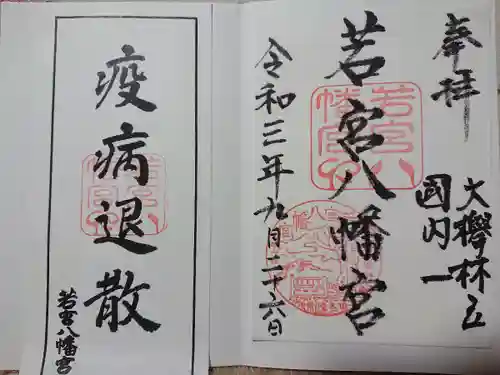 奉拝
大欅林立
國内一
若宮八幡宮
若宮八幡宮
令和三年九月二十六日
疫病退散
若宮八幡宮